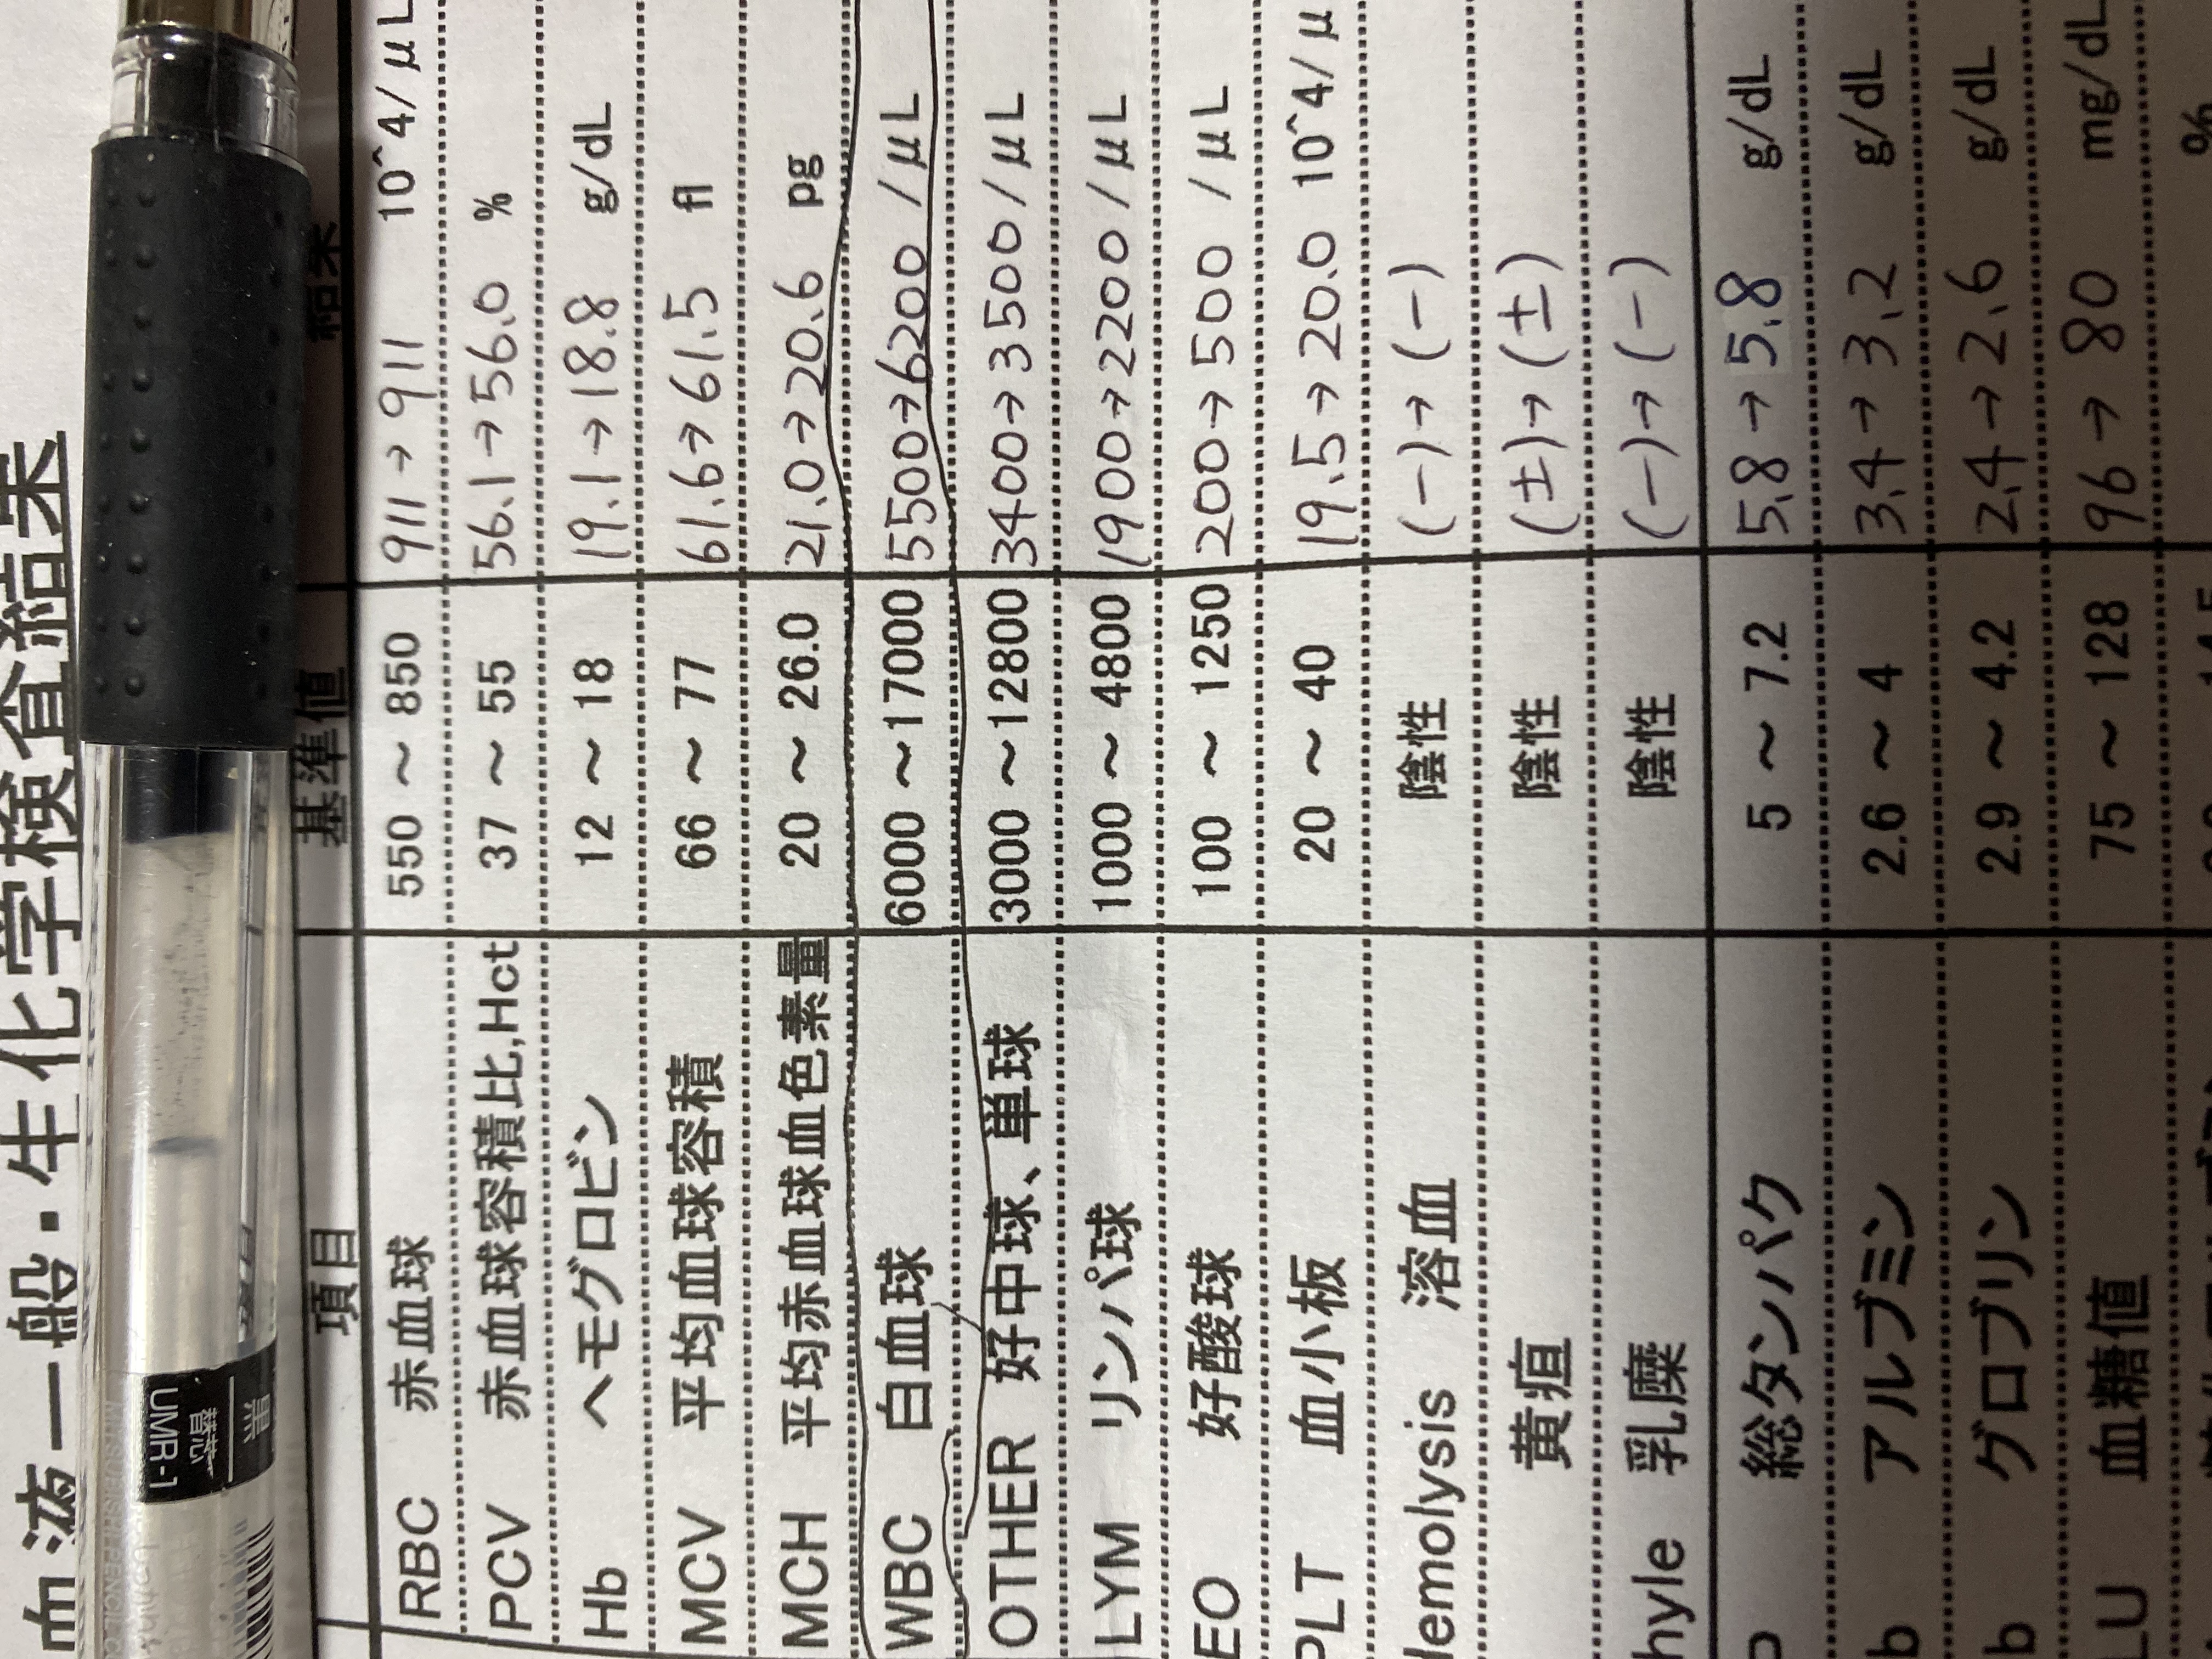 血液一般・生化学検査結果
項目 基準値 結果
RBC 赤血球 550 ～ 850 911 → 911 10^4/μL
PCV 赤血球容積比,Hct 37 ～ 55 56.1 → 56.0 %
Hb ヘモグロビン 12 ～ 18 19.1 → 18.8 g/dL
MCV 平均血球容積 66 ～ 77 61.6 → 61.5 fl
MCH 平均赤血球血色素量 20 ～ 26.0 21.0 → 20.6 pg
WBC 白血球 6000 ～17000 5500→6200 /μL
OTHER 好中球、単球 3000 ～12800 3400→3500 /μL
LYM リンパ球 1000 ～ 4800 1900→2200 /μL
EO 好酸球 100 ～ 1250 200→500 /μL
PLT 血小板 20 ～ 40 19.5→20.0 10^4/μ
lemolysis 溶血 陰性 (-)→(-)
黄疸 陰性 (±)→(±)
hyle 乳糜 陰性 (-)→(-)
P 総タンパク 5 ～ 7.2 5.8 → 5.8 g/dL
b アルブミン 2.6 ～ 4 3.4 → 3.2 g/dL
b グロブリン 2.9 ～ 4.2 2.4 → 2.6 g/dL
LU 血糖値 75 ～ 128 96 → 80 mg/dL
%
黒
替芯
UMR-1